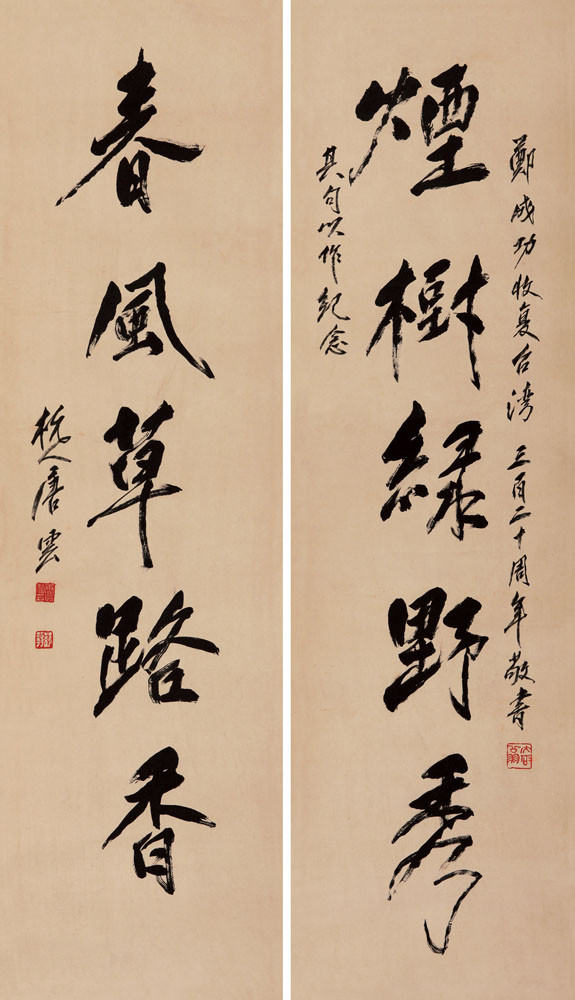 鄭成功收复台湾三百二十周年敬書
煙樹綠野秀
其句以作紀念
春風草路香
杭人唐雲